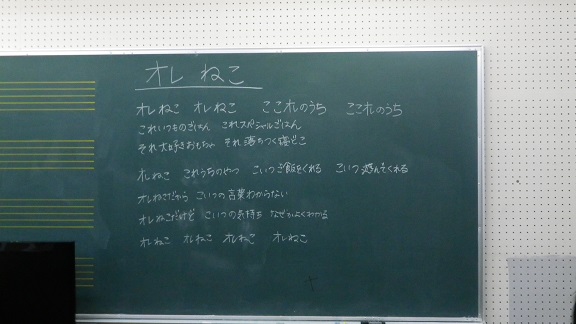 オレ ねこ
オレねこ オレねこ ここオレのうち ここオレのうち
これいつものごはん これスペシャルごはん
それ大好きおもちゃ それ落ちつく寝どこ
オレねこ これうちのやつ こいつご飯をくれる こいつ遊んでくれる
オレねこだから こいつの言葉わからない
オレねこだけど こいつの気持ち なぜかよくわかる
オレねこ オレねこ オレねこ オレねこ